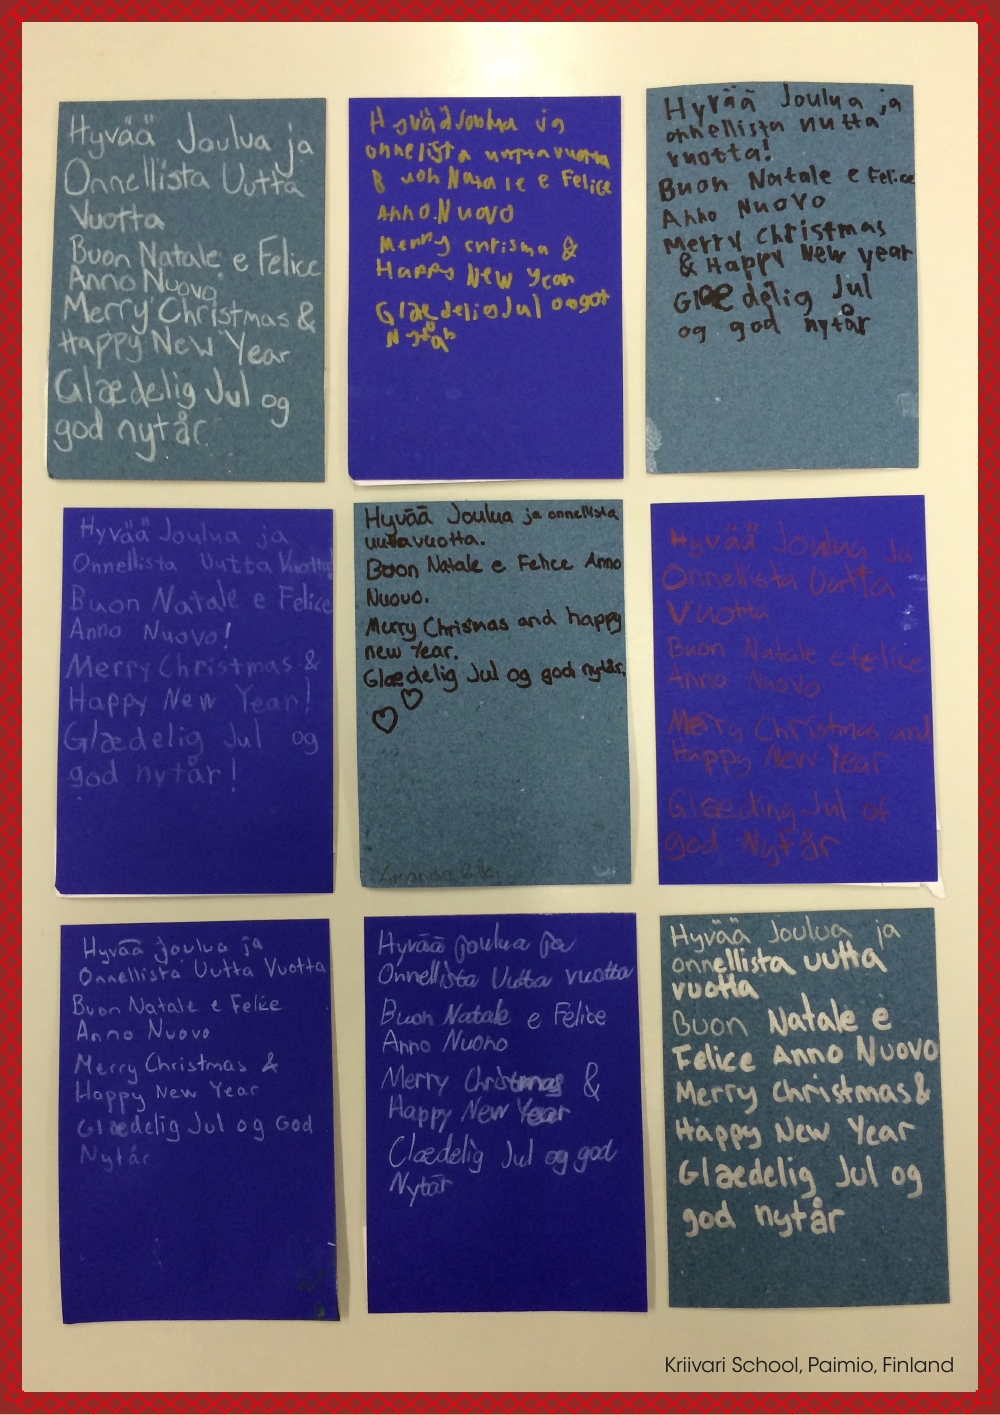 Hyvää Joulua ja
Onnellista Uutta
Vuotta
Buon Natale e Felice
Anno Nuovo
Merry Christmas &
Happy New Year
Glædelig Jul og
god nytår
Hyvää Joulua ja
onnelista uutta vuotta
Buon Natale e Felice
Anno Nuovo
Merry chrisma &
Happy New Year
Glædelig Jul og got
Nytår
Hyvää Joulua ja
onnellista uutta
vuotta!
Buon Natale e Felice
Anno Nuovo
Merry Christmas
& Happy New year
Glædelig Jul
og god nytår
Hyvää Joulua ja
Onnellista Uutta Vuotta!
Buon Natale e Felice
Anno Nuovo!
Merry Christmas &
Happy New Year!
Glædelig Jul og
god nytår!
Hyvää Joulua ja onnellista
uutta vuotta.
Buon Natale e Felice Anno
Nuovo.
Merry Chrismas and happy
new Year.
Glædelig Jul og god nytår.
Amanda
Hyvää Joulua Ja
Onnellista Uutta
Vuotta
Buon Natale e felice
Anno Nuovo
Merry Christmas and
Happy New Year
Glæeding Jul of
god Nytår
Hyvää Joulua ja
Onnellista Uutta Vuotta
Buon Natale e Felice
Anno Nuovo
Merry Christmas &
Happy New Year
Glædelig Jul og God
Nytår
Hyvää Joulua Ja
Onnellista Uutta vuotta
Buon Natale e Felice
Anno Nuono
Merry Christmas &
Happy New Year
Clædelig Jul og god
Nytår
Hyvää Joulua ja
onnellista uutta
vuotta
Buon Natale e
Felice Anno Nuovo
Merry Christmas &
Happy New Year
Glædelig Jul og
god nytår
Kriivari School, Paimio, Finland